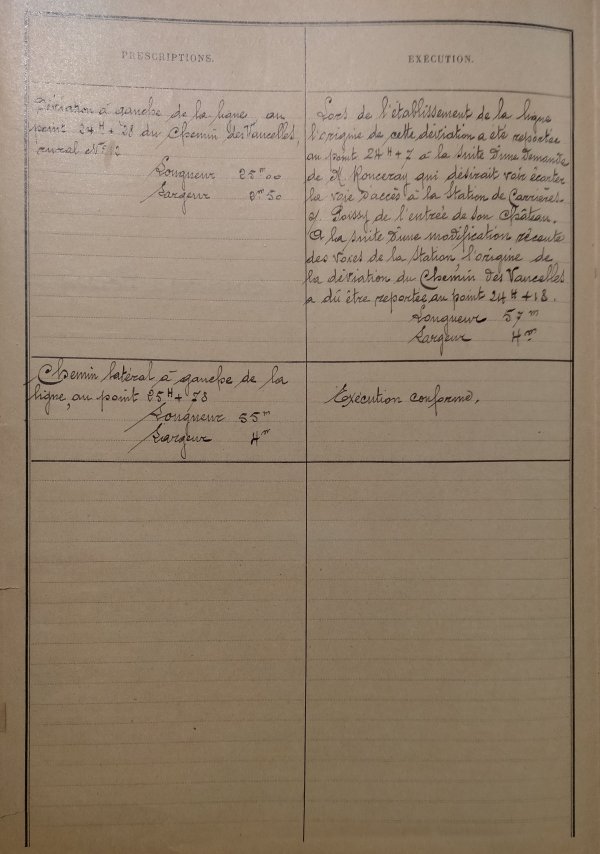 PRESCRIPTIONS.
Déviation à gauche de la ligne au
point 24ᴴ + 78 du Chemin des Vaucelles,
rural Nº 2
Longueur 25ᵐ00
Largeur 2ᵐ50
Chemin latéral à gauche de la
ligne, au point 25ᴴ + 73
Longueur 55ᵐ
Largeur 4ᵐ
EXÉCUTION.
Lors de l'établissement de la ligne
l'origine de cette déviation a été reportée
au point 24ᴴ + 7 à la suite d'une demande
de M. qui désirait voir écarter
la voie d'accès à la station de Carrières-
s/ Poissy de l'entrée de son Château.
A la suite d'une modification récente
des voies de la station, l'origine de
la déviation du Chemin des Vaucelles
a dû être reportée au point 24ᴴ + 18.
Longueur 57ᵐ
Largeur 4ᵐ
Exécution conforme.